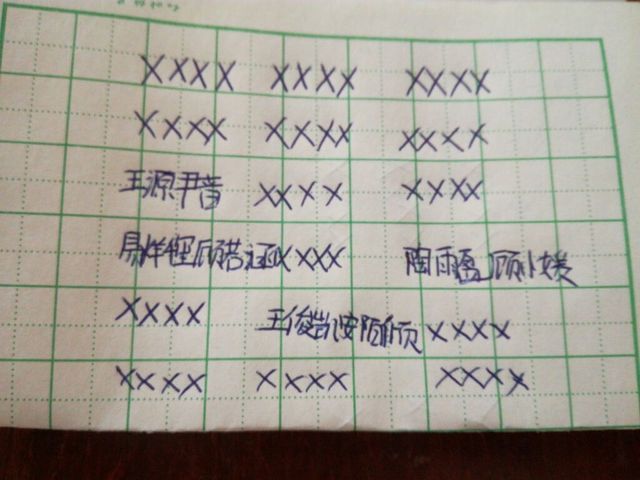 XXXX XXXX XXXX
XXXX XXXX XXXX
王源尹音 XXXX XXXX
易烊千玺顾若涵XXXX 陶雨 顾小媛
XXXX 王俊凯安陌 XXXX
XXXX XXXX XXXX